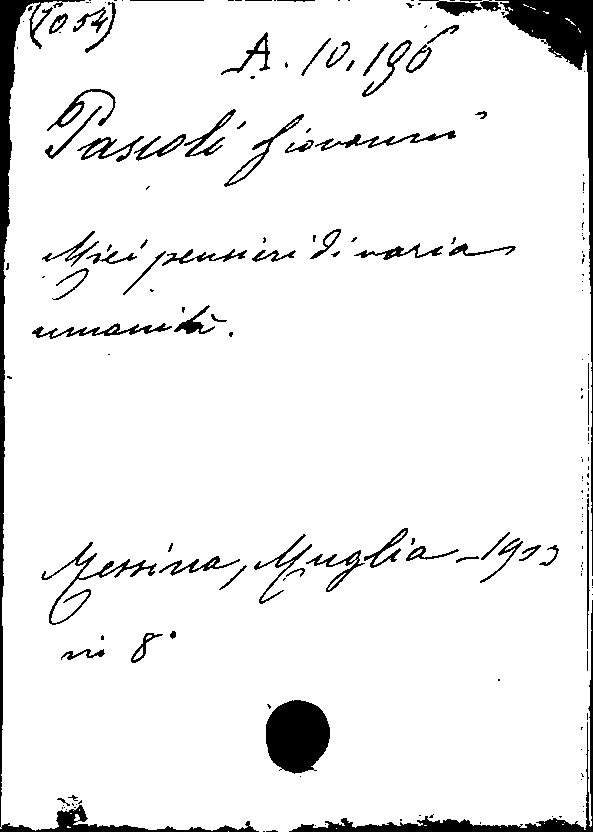 (7054)
A. 10. 196
Pascoli Giovanni
Miei pensieri di varia
umanità.
Messina, Muglia - 1903
in 8°